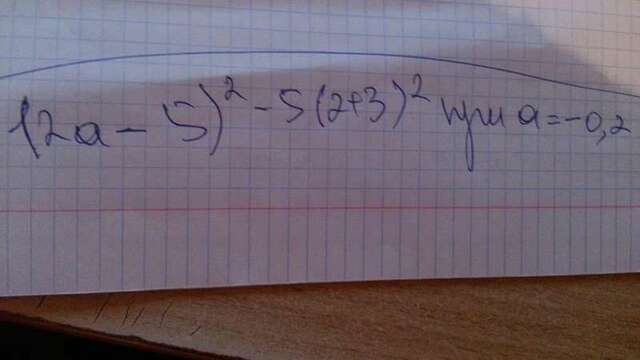 (2a - 5)² - 5(2+3)² при a = -0,2